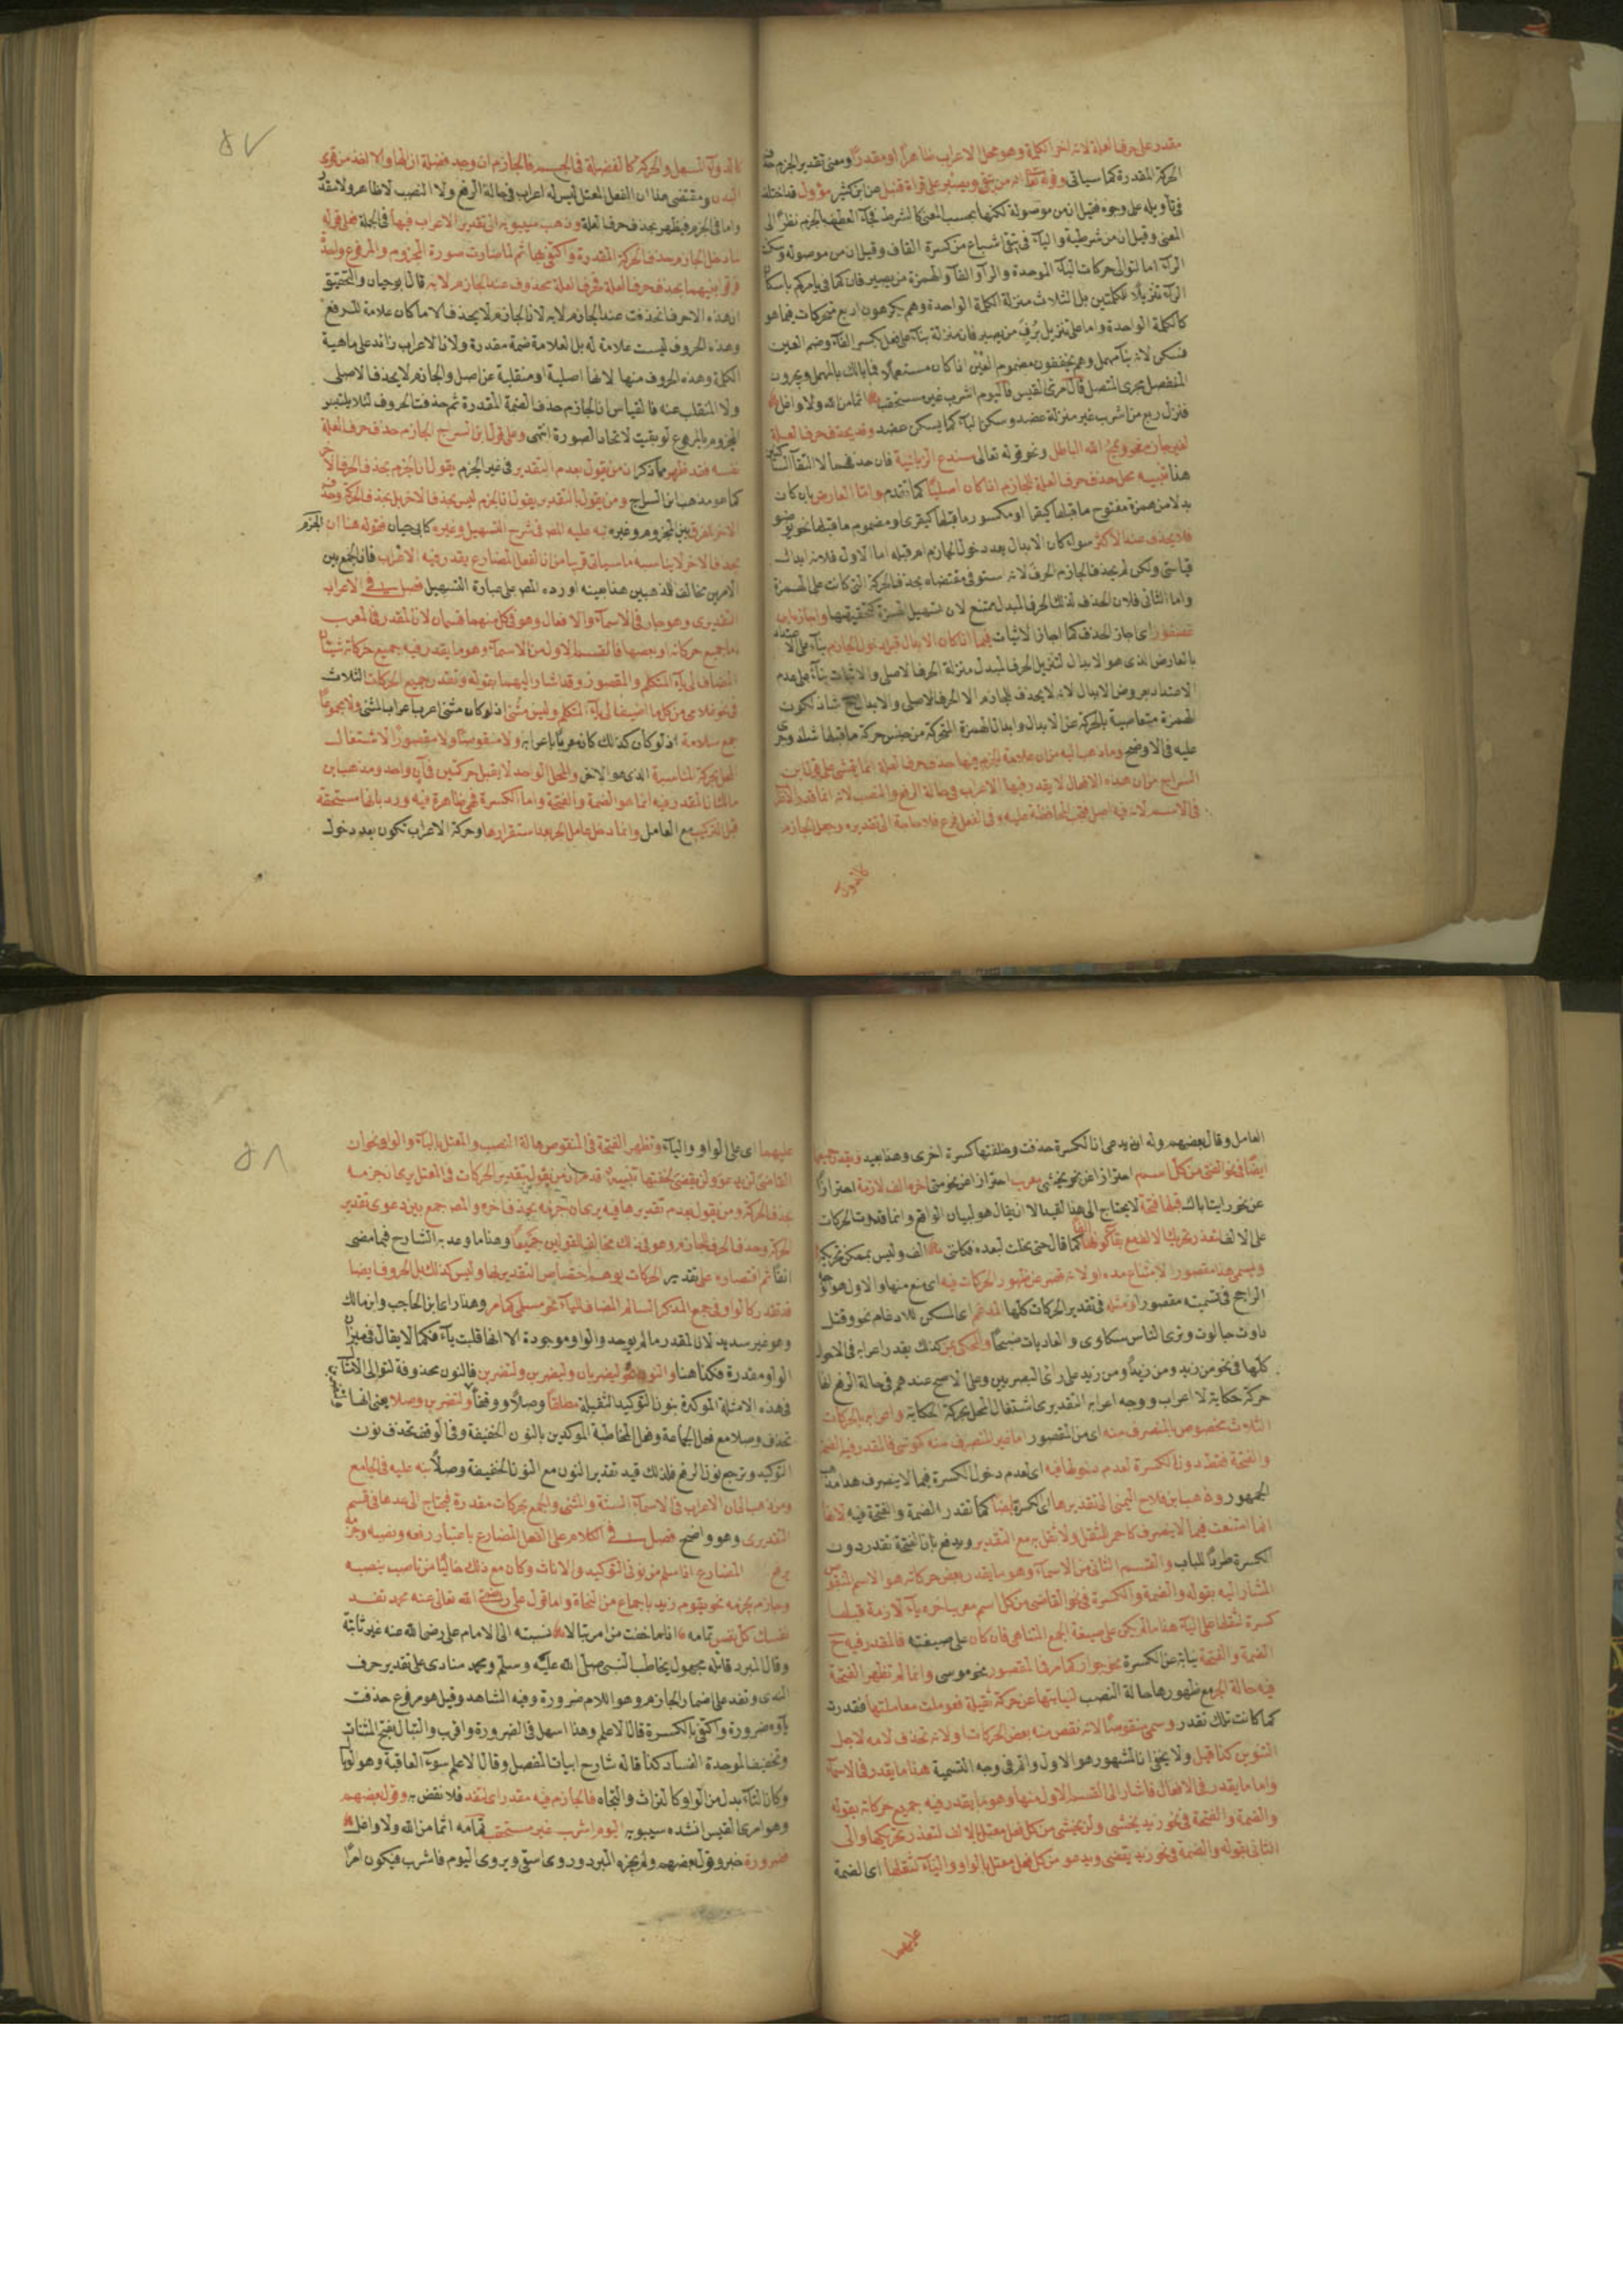 مقدر على حرف العلة لانه اخر الكلمة وهو محل الاعراب ظاهرا او مقدرا ومعنى تقدير الجزم حذف
الحركة المقدرة كما سياتى وقوله تعالى انه من يتقى ويصبر على قراة قنبل عن ابن كثير مؤول فقد اختلف
فى تاويله على وجوه فقيل ان من موصولة لكنها بحسب المعنى كالشرط فجآء العطف بالجزم نظرا الى
المعنى وقيل ان من شرطية واليآء فى يتقى اشباع من كسرة القاف وقيل ان من موصوله وسكنت
الرآء اما لتوالى حركات البآء الموحدة والرآء والفآء والهمزة من يصبر فان كما فى يامركم باسكان
الرآء تنزيلا للكلمتين بل الثلاث منزلة الكلمة الواحدة وهم يكرهون اربع متحركات فيما هو
كالكلمة الواحدة واما على تنزيل برف من يصبر فان منزلة بنآء على فعل بكسر الفآء وضم العين
فسكن لانه بنآء مهمل وهم يخففون مضموم العين اذا كان مستعملا فما بالك بالمهمل ويجرون
المنفصل مجرى المتصل قال امرئ القيس فاليوم اشرب غير مستحقب اثما من الله ولا واغل
فنزل ربع من اشرب غير منزلة عضد وسكن البآء كما يسكن عضد وقد يحذف حرف العلة
لغير جازم نحو ويمح الله الباطل ونحو قوله تعالى سندع الزبانية فان حذفهما لالتقآء الساكنين
هذا تنبيه محل حذف حرف العلة للجازم اذا كان اصليا كما تقدم واما العارض بان كان
بدلا من همزة مفتوح ما قبلها كيقرا او مكسور ما قبلها كيقرى او مضموم ما قبلها نحو يوضو
فلا يحذف عند الاكثر سوآء كان الابدال بعد دخول الجازم ام قبله اما الاول فلانه ابدال
قياسى ولكن لم يحذف الجازم الحرف لانه استوفى مقتضاه بحذف الحركة التى كانت على الهمزة
واما الثانى فلان الحذف لذلك الحرف المبدل ممتنع لان تسهيل الهمزة كتحقيقها واجاز ابن
عصفور اى جاز الحذف كما اجاز الاثبات فيما اذا كان الابدال قبل دخول الجازم بنآء على الاعتداد
بالعارض الذى هو الابدال لتنزيل الحرف المبدل منزلة الحرف الاصلى والاثبات بنآء على عدم
الاعتداد بعروض الابدال لانه لا يحذف للجازم الا الحرف الاصلى والابدال ح شاذ لكون
الهمزة متعاصية بالحركة عن الابدال وابدال الهمزة المتحركة من جنس حركة ما قبلها شاذ وجرى
عليه فى الاوضح وما ذهب اليه من ان علامة الجزم فيها حذف حرف العلة انما يتمشى على قول ابن
السراج من ان هذه الافعال لا يقدر فيها الاعراب فى حالة الرفع والنصب لانه انما قدر الاعراب
فى الاسم لانه فيه اصل فتجب المحافظة عليه وفى الفعل فرع فلا حاجة الى تقديره وجعل الجازم
كالدوآء
٥٧
كالدوآء المسهل والحركة كالفضلة فى الجسم فالجازم ان وجد فضلة ازالها والا اخذ من قوى
البدن ومقتضى هذا ان الفعل المعتل ليس له اعراب فى حالة الرفع ولا النصب لا ظاهر ولا مقدر
واما فى الجزم فيظهر بحذف حرف العلة وذهب سيبويه الى تقدير الاعراب فيها فى الجملة فعلى قوله
لما دخل الجازم حذف الحركة المقدرة واكتفى بها ثم لما صارت صورة المجزوم والمرفوع واحدة
فرقوا بينهما بحذف حرف العلة فحرف العلة محذوف عند الجازم لا به قال ابو حيان والتحقيق
ان هذه الاحرف انحذفت عند الجازم لا به لان الجازم لا يحذف الا ما كان علامة للرفع
وهذه الحروف ليست علامة له بل العلامة ضمة مقدرة ولان الاعراب زائد على ماهية
الكلمة وهذه الحروف منها لانها اصلية او منقلبة عن اصل والجازم لا يحذف الاصلى
ولا المنقلب عنه فالقياس ان الجازم حذف الضمة المقدرة ثم حذفت الحروف لئلا يلتبس
المجزوم بالمرفوع لو بقيت لاتحاد الصورة انتهى وعلى قول ابن السراج الجازم حذف حرف العلة
نفسه فقد ظهر مما ذكر ان من يقول بعدم التقدير فى غير الجزم يقول ان الجزم بحذف الحرف الاخير
كما هو مذهب ابن السراج ومن يقول بالتقدير يقول ان الجزم ليس بحذف الاخر بل بحذف الحركة وحذف
الاخر للفرق بين المجزوم وغيره نبه عليه المص فى شرح التسهيل وغيره كابى حيان فقوله هنا ان الجزم
بحذف الاخر لا يناسبه ما سياتى قريبا من ان الفعل المضارع يقدر فيه الاعراب فان الجمع بين
الامرين مخالف للمذهبين هذا بعينه اورده المص على عبارة التسهيل فصل فى الاعراب
التقديرى وهو جار فى الاسمآء والافعال وهو فى كل منهما قسمان لان المقدر فى المعرب
اما جميع حركاته او بعضها فالقسم الاول من الاسمآء وهو ما يقدر فيه جميع حركاته شيئان
المضاف الى يآء المتكلم والمقصور وقد اشار اليهما بقوله وتقدر جميع الحركات الثلاث
فى نحو غلامى من كل ما اضيف الى يآء المتكلم وليس مثنى اذ لو كان مثنى اعرب اعراب المثنى ولا مجموعا
جمع سلامة اذ لو كان كذلك كان معربا باعرابه ولا منقوصا ولا مقصورا لاشتغال
المحل بحركة المناسبة الذى هو الاخر والمحل الواحد لا يقبل حركتين فى آن واحد ومذهب ابن
مالك ان المقدر فيه انما هو الضمة والفتحة واما الكسرة فهى ظاهرة فيه ورد بانها مستحقة
قبل التركيب مع العامل وانما دخل عامل الجر بعد استقرارها وحركة الاعراب تكون بعد دخول
العامل وقال بعضهم وله ان يدعى ان الكسرة حذفت وخلفتها كسرة اخرى وهذا بعيد ويقدر جميعها
ايضا فى نحو الفتى من كل اسم احترازا عن نحو يخشى معرب احترازا عن نحو متى اخره الف لازمة احترازا
عن نحو رايت اباك قبلها فتحة لا يحتاج الى هذا القيد الا ان يقال هو لبيان الواقع وانما قدرت الحركات
على الالف لتعذر تحريك الالف مع بقآء كونها الفا كما قال حتى يخلت لبعده فكانى الف وليس بممكن تحريكه
ويسمى هذا مقصورا لامتناع مده او لانه قصر عن ظهور الحركات فيه اى منع منها والاول هو
الراجح فى تسميته مقصورا ومثله فى تقدير الحركات كلها المدغم اى المسكن للادغام نحو وقتل
داوت جالوت وترى الناس سكارى والعاديات ضبحا والمحكى بمن كذلك يقدر اعرابه فى الاحوال
كلها فى نحو من زيد ومن زيدا ومن زيد على راى البصريين وعلى الاصح عندهم فى حالة الرفع انها
حركة حكاية لا اعراب ووجه اعرابه التقديرى اشتغال المحل بحركة الحكاية واعرابه بالحركات
الثلاث مخصوص بالمنصرف منه اى من المقصور اما غير المنصرف منه كموسى فالمقدر فيه الضمة
والفتحة فقط دون الكسرة لعدم دخولها فيه اى لعدم دخول الكسرة فيما لا ينصرف هذا مذهب
الجمهور وذهب ابن فلاح اليمنى الى تقديرها اى الكسرة ايضا كما تقدر الضمة والفتحة فيه لانها
انما امتنعت فيما لا ينصرف كاحمر للثقل ولا ثقل مع التقدير ويدفع بان الفتحة تقدر دون
الكسرة طردا للباب والقسم الثانى من الاسمآء وهو ما يقدر بعض حركاته هو الاسم المنقوص
المشار اليه بقوله والضمة والكسرة فى نحو القاضى من كل اسم معرب اخره يآء لازمة قبلها
كسرة لثقلها على اليآء هذا ما لم يكن على صيغة الجمع المتناهى فان كان على صيغته فالمقدر فيه ح
الضمة والفتحة نيابة عن الكسرة نحو جوار كما مر فى المقصور نحو موسى وانما لم تظهر الفتحة
فيه حالة الجر مع ظهورها حالة النصب لنيابتها عن حركة ثقيلة فعوملت معاملتها فقدرت
كما كانت تلك تقدر وسمى منقوصا لانه نقص منه بعض الحركات او لانه تحذف لامه لاجل
التنوين كذا قيل ولا يخفى ان المشهور هو الاول واتم فى وجه التسمية هذا ما يقدر فى الاسمآء
واما ما يقدر فى الافعال فاشار الى القسم الاول منها وهو ما يقدر فيه جميع حركاته بقوله
والضمة والفتحة فى نحو زيد يخشى ولن يخشى من كل فعل معتل بالالف لتعذر تحريكها والى
الثانى بقوله والضمة فى نحو زيد يقضى ويدعو من كل فعل معتل بالواو واليآء لثقلها اى الضمة
عليهما
٥٨
عليهما اى على الواو واليآء وتظهر الفتحة فى المنقوص حالة النصب والمعتل باليآء والواو نحو ان
القاضى لن يدعو ولن يقضى لخفتها تنبيه قد مر ان من يقول بتقدير الحركات فى المعتل يرى ان جزمه
بحذف الحركة ومن يقول بعدم تقديرها فيه يرى ان جزمه بحذف اخره والمص جمع بين دعوى تقدير
الحركة وحذف الحرف للجازم وهو فى ذلك مخالف للقولين جميعا وهذا ما وعد به الشارح فيما مضى
انفا ثم اقتصاره على تقدير الحركات يوهم اختصاص التقدير بها وليس كذلك بل الحروف ايضا
قد تقدر كالواو فى جمع المذكر السالم المضاف لليآء نحو مسلمى كما مر وهذا راى ابن الحاجب وابن مالك
وهو غير سديد لان المقدر ما لم يوجد والواو موجودة الا انها قلبت يآء فكما لا يقال فى ميزان
الواو مقدرة فكذا هنا والنون نحو ليضربان وليضربن ولتضربن فالنون محذوفة لتوالى الامثال
فى هذه الامثلة الموكدة بنون التوكيد الثقيلة مطلقا وصلا ووقفا ولتضربن وصلا يعنى انها
تحذف وصلا مع فعل الجماعة وفعل المخاطبة الموكدين بالنون الخفيفة وفى الوقف تحذف نون
التوكيد وترجع نون الرفع فلذلك قيد تقدير النون مع النون الخفيفة وصلا نبه عليه فى الجامع
ومن ذهب الى ان الاعراب فى الاسمآء الستة والمثنى والجمع بحركات مقدرة فيحتاج الى عدها فى قسم
التقديرى وهو واضح فصل فى الكلام على الفعل المضارع باعتبار رفعه ونصبه وجزمه
يرفع المضارع اذا سلم من نونى التوكيد والاناث وكان مع ذلك خاليا من ناصب ينصبه
وجازم يجزمه نحو يقوم زيد باجماع من النحاة واما قول على رضى الله تعالى عنه محمد تفد
نفسك كل نفس تمامه اذا ما خفت من امر تبالا نسبته الى الامام على رضى الله عنه غير ثابتة
وقال المبرد قائله مجهول يخاطب النبى صلى الله عليه وسلم ومحمد منادى على تقدير حرف
الندى وتفد على اضمار الجازم وهو اللام ضرورة وفيه الشاهد وقيل هو مرفوع حذفت
يآوه ضرورة واكتفى بالكسرة قال الاعلم وهذا اسهل فى الضرورة واقرب والتبال بفتح المثناة
وتخفيف الموحدة الفساد كذا قاله شارح ابيات المفصل وقال الاعلم سوء العاقبة وهو الوبا
وكان التآء بدل من الواو كالتراث والتجاه فالجازم فيه مقدر اى لتفد فلا نقض به وقول بعضهم
وهو امرئ القيس انشده سيبويه اليوم اشرب غير مستحقب تمامه اثما من الله ولا واغل
ضرورة خبر وقول بعضهم ولم يجزه المبرد وروى اسقى ويروى اليوم فاشرب فيكون امرا